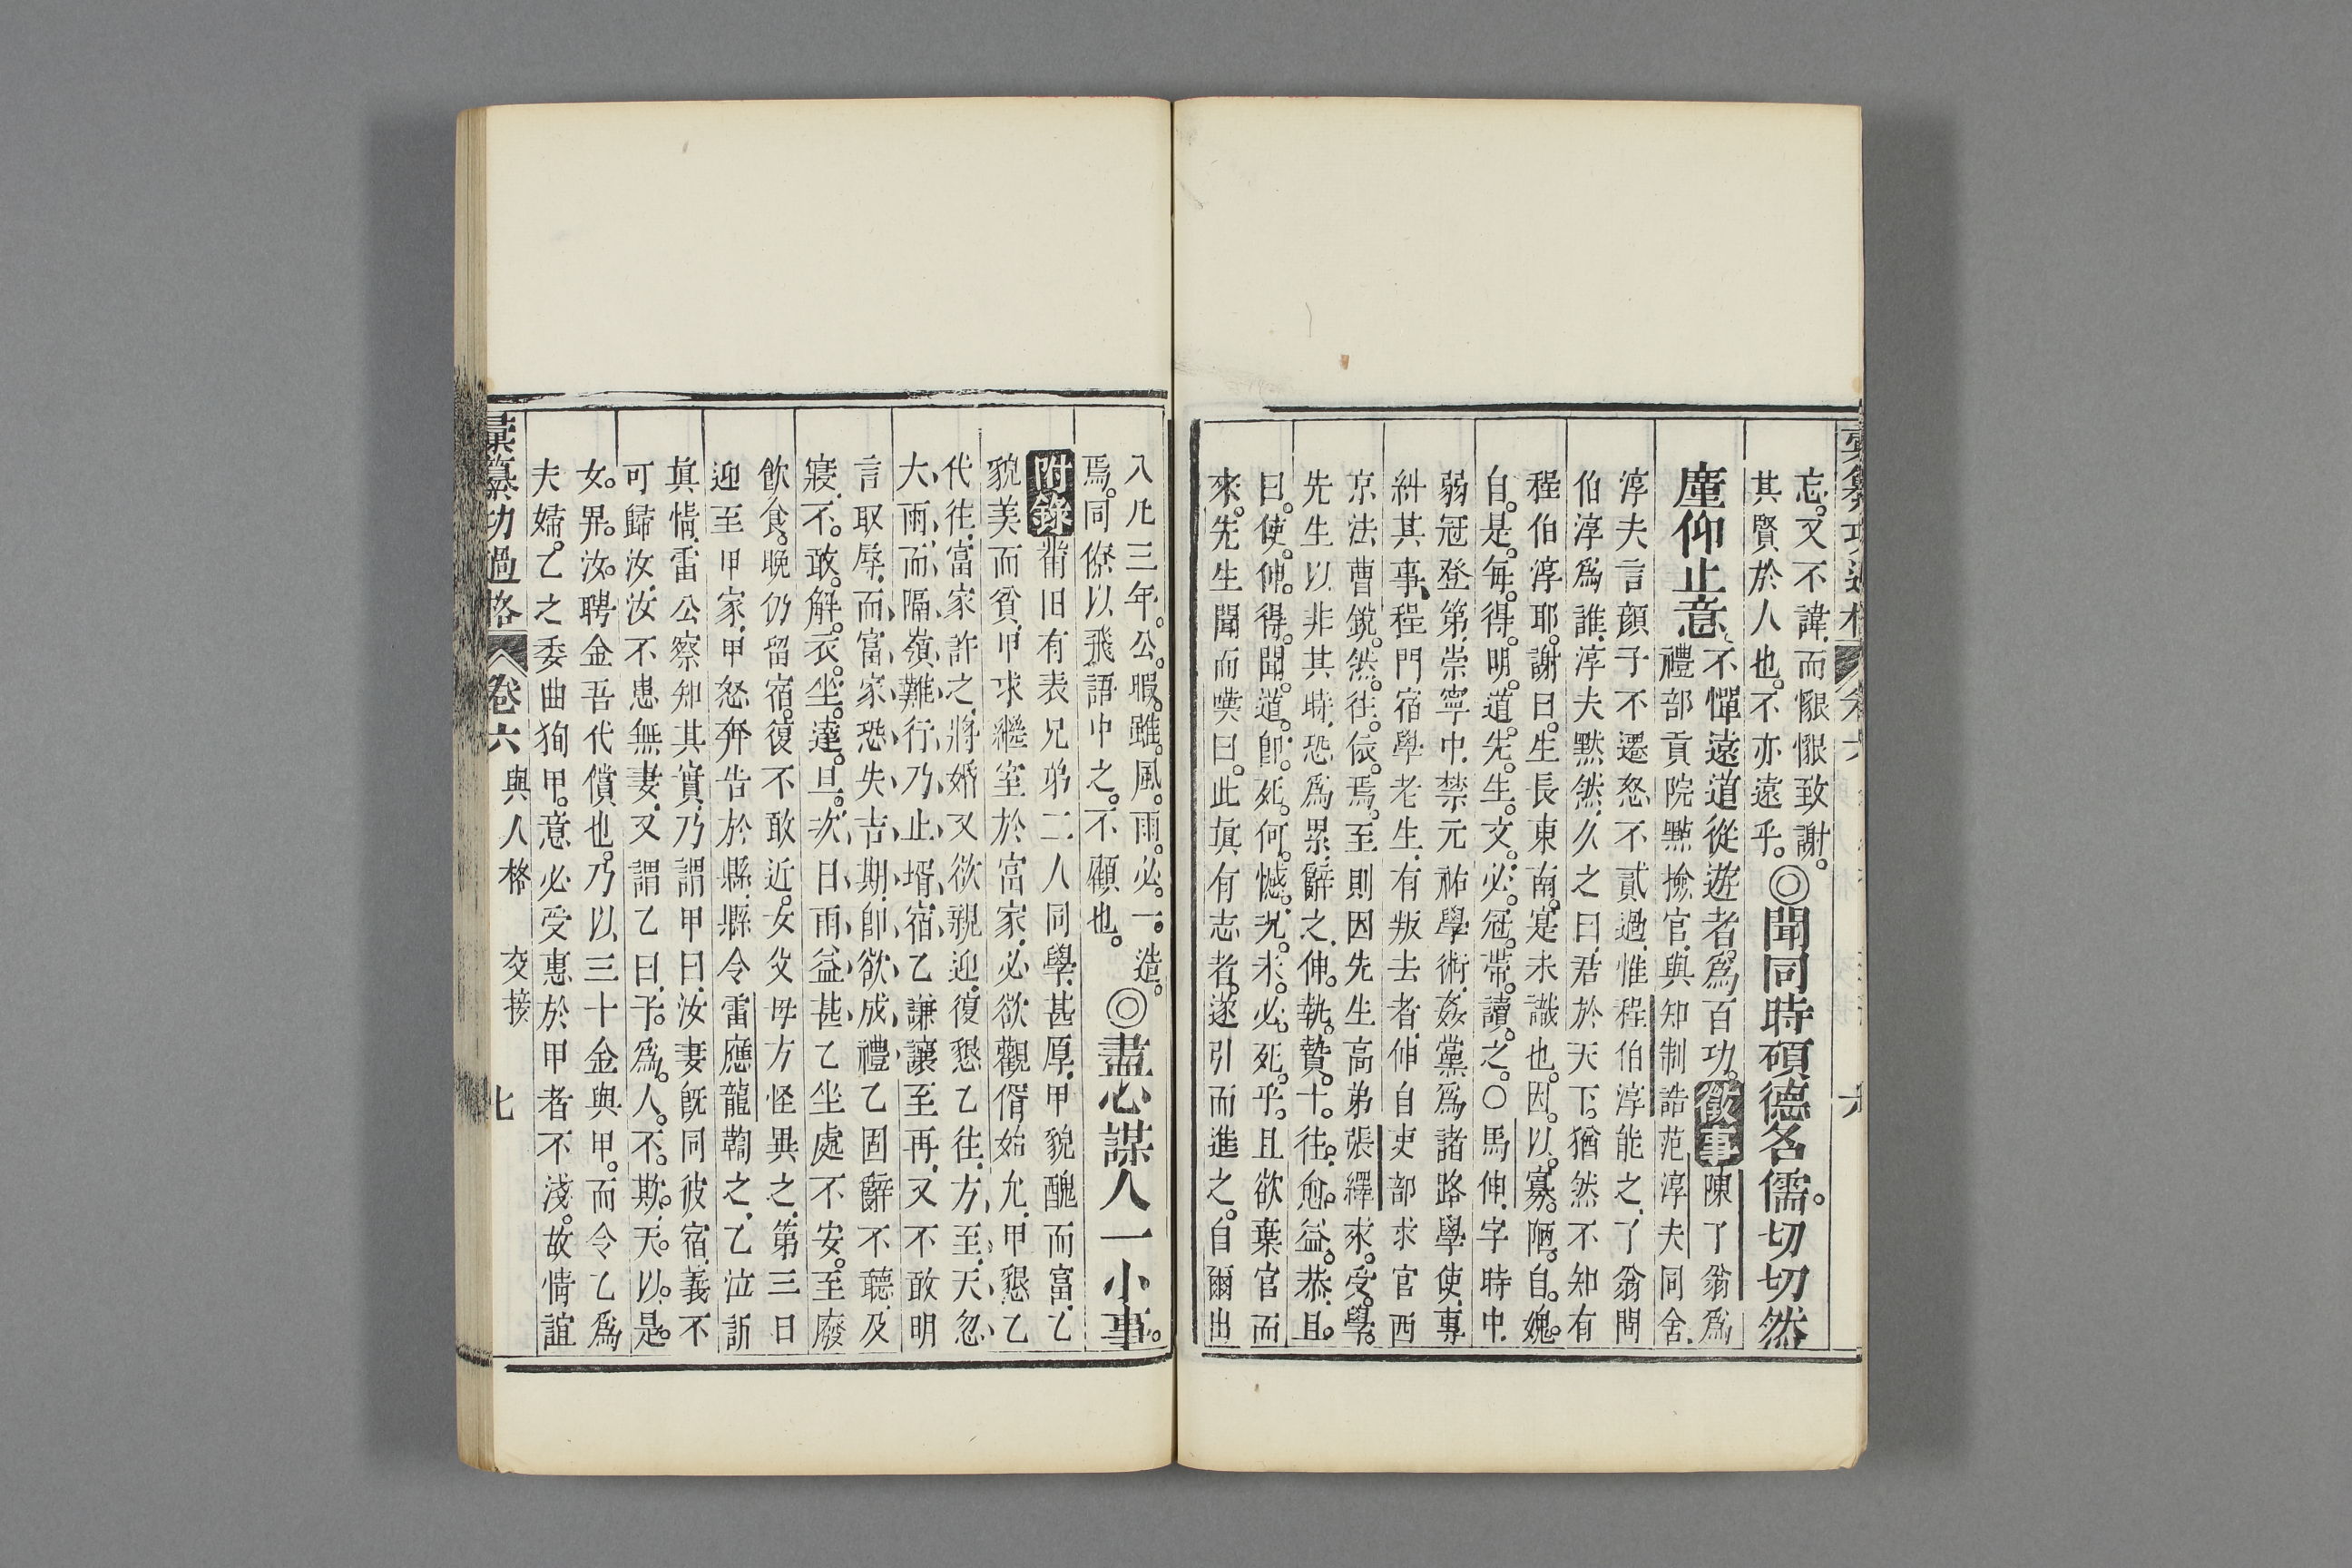 忘。又不諱。而懇懇致謝。◎聞同時碩德名儒。切切然
其賢於人也。不亦遠乎。
廑仰止意。不憚遠道從遊者。爲百功。徵事陳了翁爲
禮部貢院點撿官。與知制誥范淳夫同舍。
淳夫言顏子不遷怒不貳過。惟程伯淳能之。了翁問
伯淳爲誰。淳夫默然。久之曰。君於天下。猶然不知有
程伯淳耶。謝曰。生長東南。寔未識也。因。以。寡。陋。自。媿。
自。是。每。得。明。道。先。生。文。必。冠。帶。讀。之。○馬伸。字時中。
弱冠登第。崇寧中。禁元祐學術。姦黨爲諸路學使。專
糾其事。程門宿學老生。有叛去者。伸自吏部求官西
京法曹。銳。然。往。依。焉。至則因先生高弟張繹求。受。學。
先生以非其時。恐爲累。辭之。伸。執。贄。十。往。愈。益。恭。且。
曰。使。伸。得。聞。道。卽。死。何。憾。况。未。必。死。乎。且欲棄官而
來。先生聞而嘆曰。此眞有志者。遂引而進之。自爾出
入凡三年。公。暇。雖。風。雨。必。一。造。◎盡心謀人一小事。
焉。同僚以飛語中之。不顧也。
附錄莆旧有表兄弟二人同學。甚厚。甲貌醜而富。乙
貌美而貧。甲求繼室於富家。必欲觀偦始允。甲懇乙
代往。富家許之。將婚又欲親迎。復懇乙往。方至。天忽
大雨。而隔嶺難行。乃止壻宿。乙謙讓至再。又不敢明
言取辱。而富家恐失吉期。卽欲成禮。乙固辭不聽。及
寢。不。敢。解。衣。坐。達。旦。次日雨益甚。乙坐處不安。至廢
飲食。晚仍留宿。復不敢近。女父母方怪異之。第三日
迎至甲家。甲怒奔告於縣。縣令雷應龍鞫之。乙泣訴
眞情。雷公察知其實。乃謂甲曰。汝妻旣同彼宿。義不
可歸汝。汝不患無妻。又謂乙曰。予。爲。人。不。欺。天。以。是。
女。畀。汝。聘金吾代償也。乃以三十金與甲。而令乙爲
夫婦。乙之委曲狥甲。意必受惠於甲者不淺。故情誼
彙纂功過格 卷六 與人格 交接 七